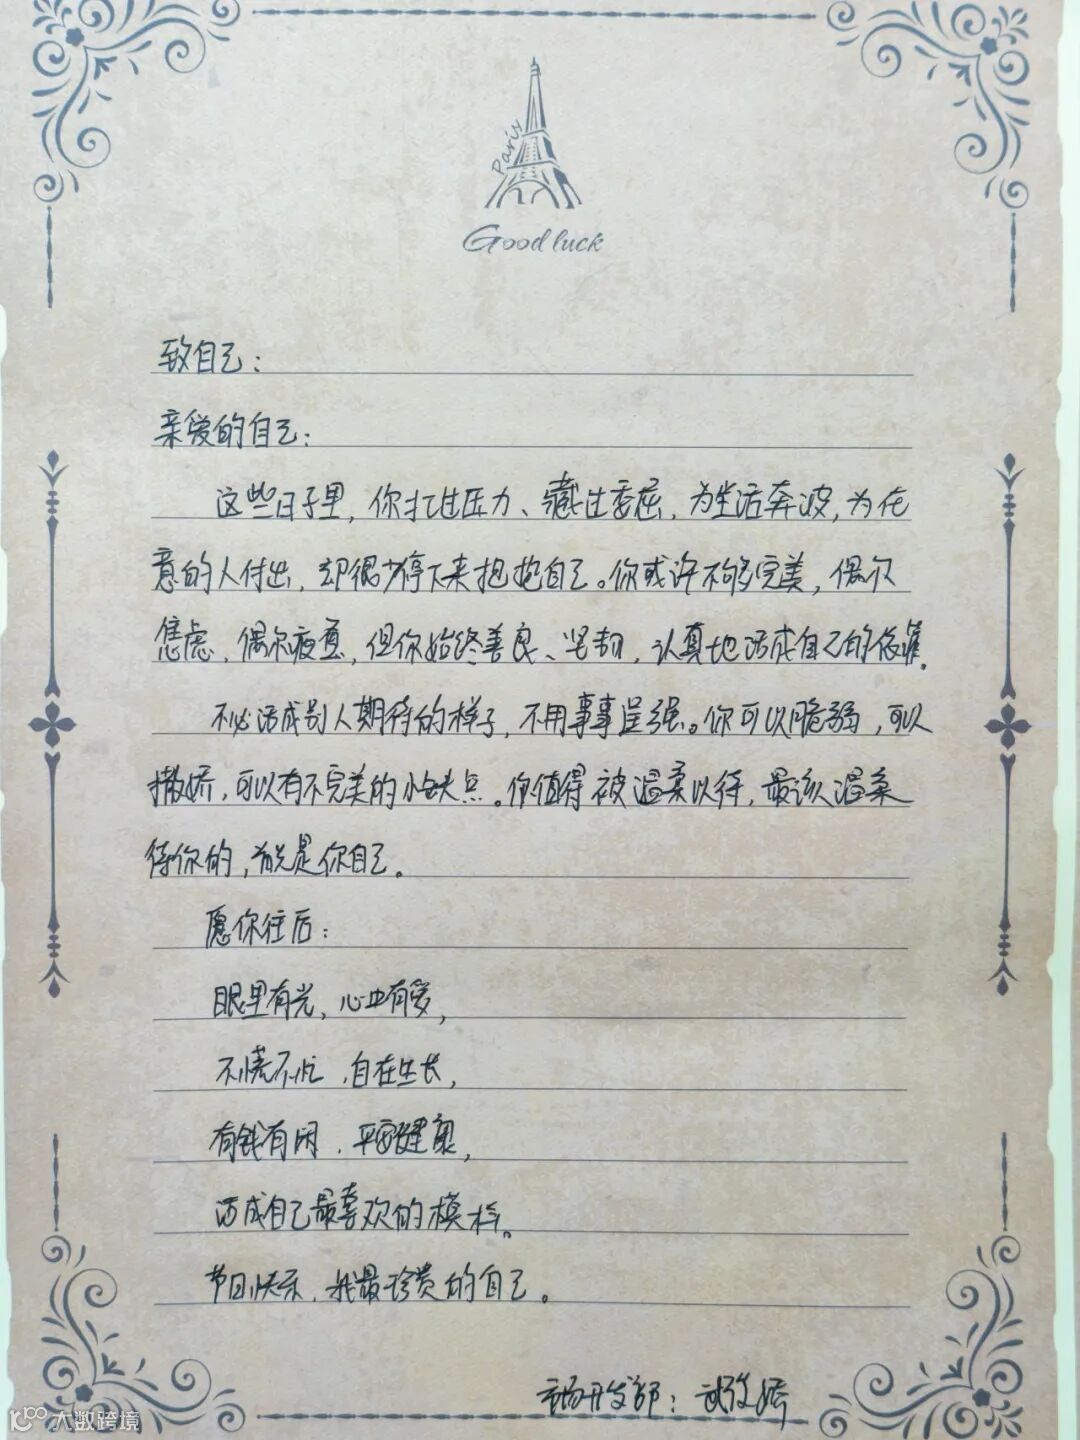 Paris
Good luck
致自己：
亲爱的自己：
这些日子里，你扛过压力、藏过委屈，为生活奔波，为在
意的人付出，却很少停下来抱抱自己。你或许不够完美，偶尔
焦虑，偶尔疲惫，但你始终善良、坚韧，认真地活成自己的依靠。
不必活成别人期待的样子，不用事事逞强。你可以脆弱，可以
撒娇，可以有不完美的小缺点。你值得被温柔以待，最该温柔
待你的，就是你自己。
愿你往后：
眼里有光，心中有爱，
不慌不忙，自在生长，
有钱有闲，平安健康，
活成自己最喜欢的模样。
节日快乐，我最珍贵的自己。
市场开发部：武
大数跨境